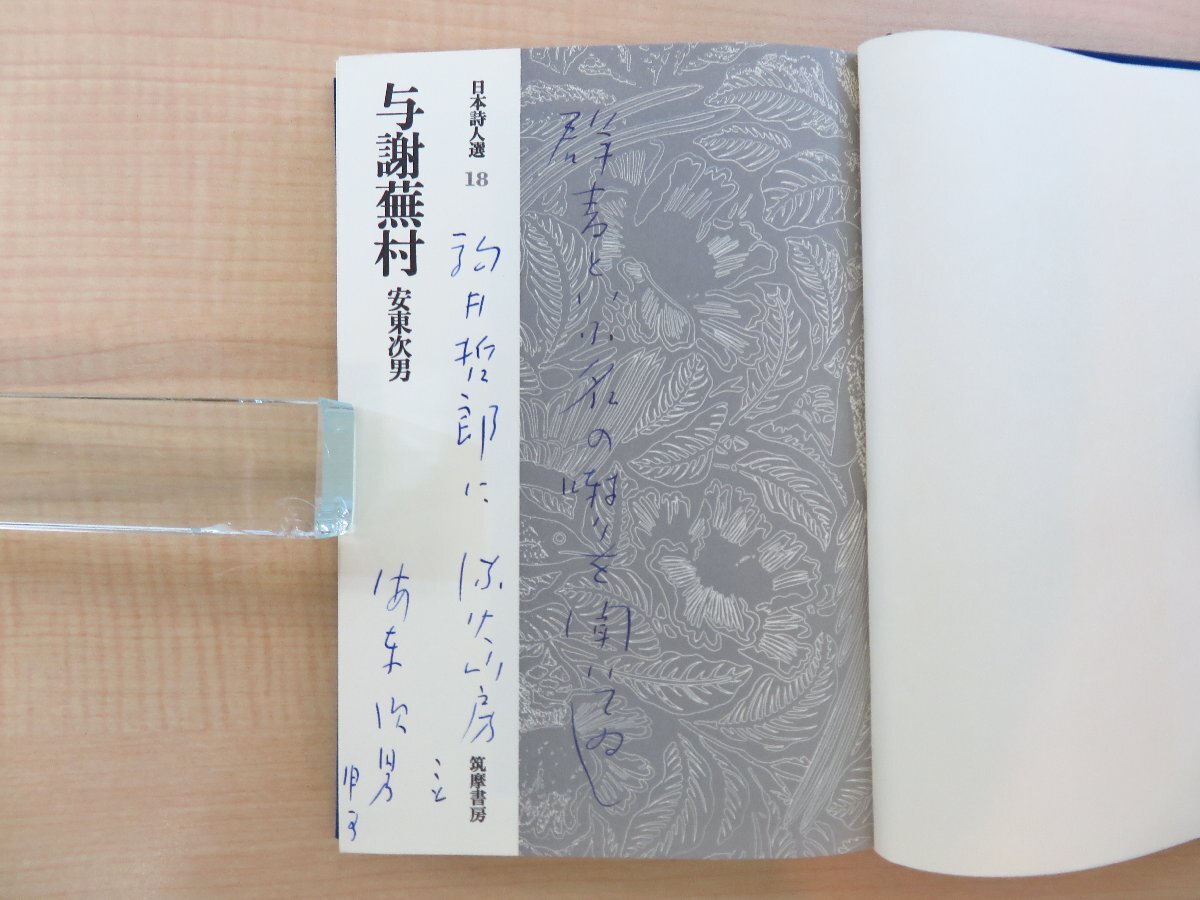 群青といふ の囀りを聞いてゐし
日本詩人選 18
駒井哲郎に 流火山房
こと
筑摩書房
与謝蕪村 安東次男
安東次男